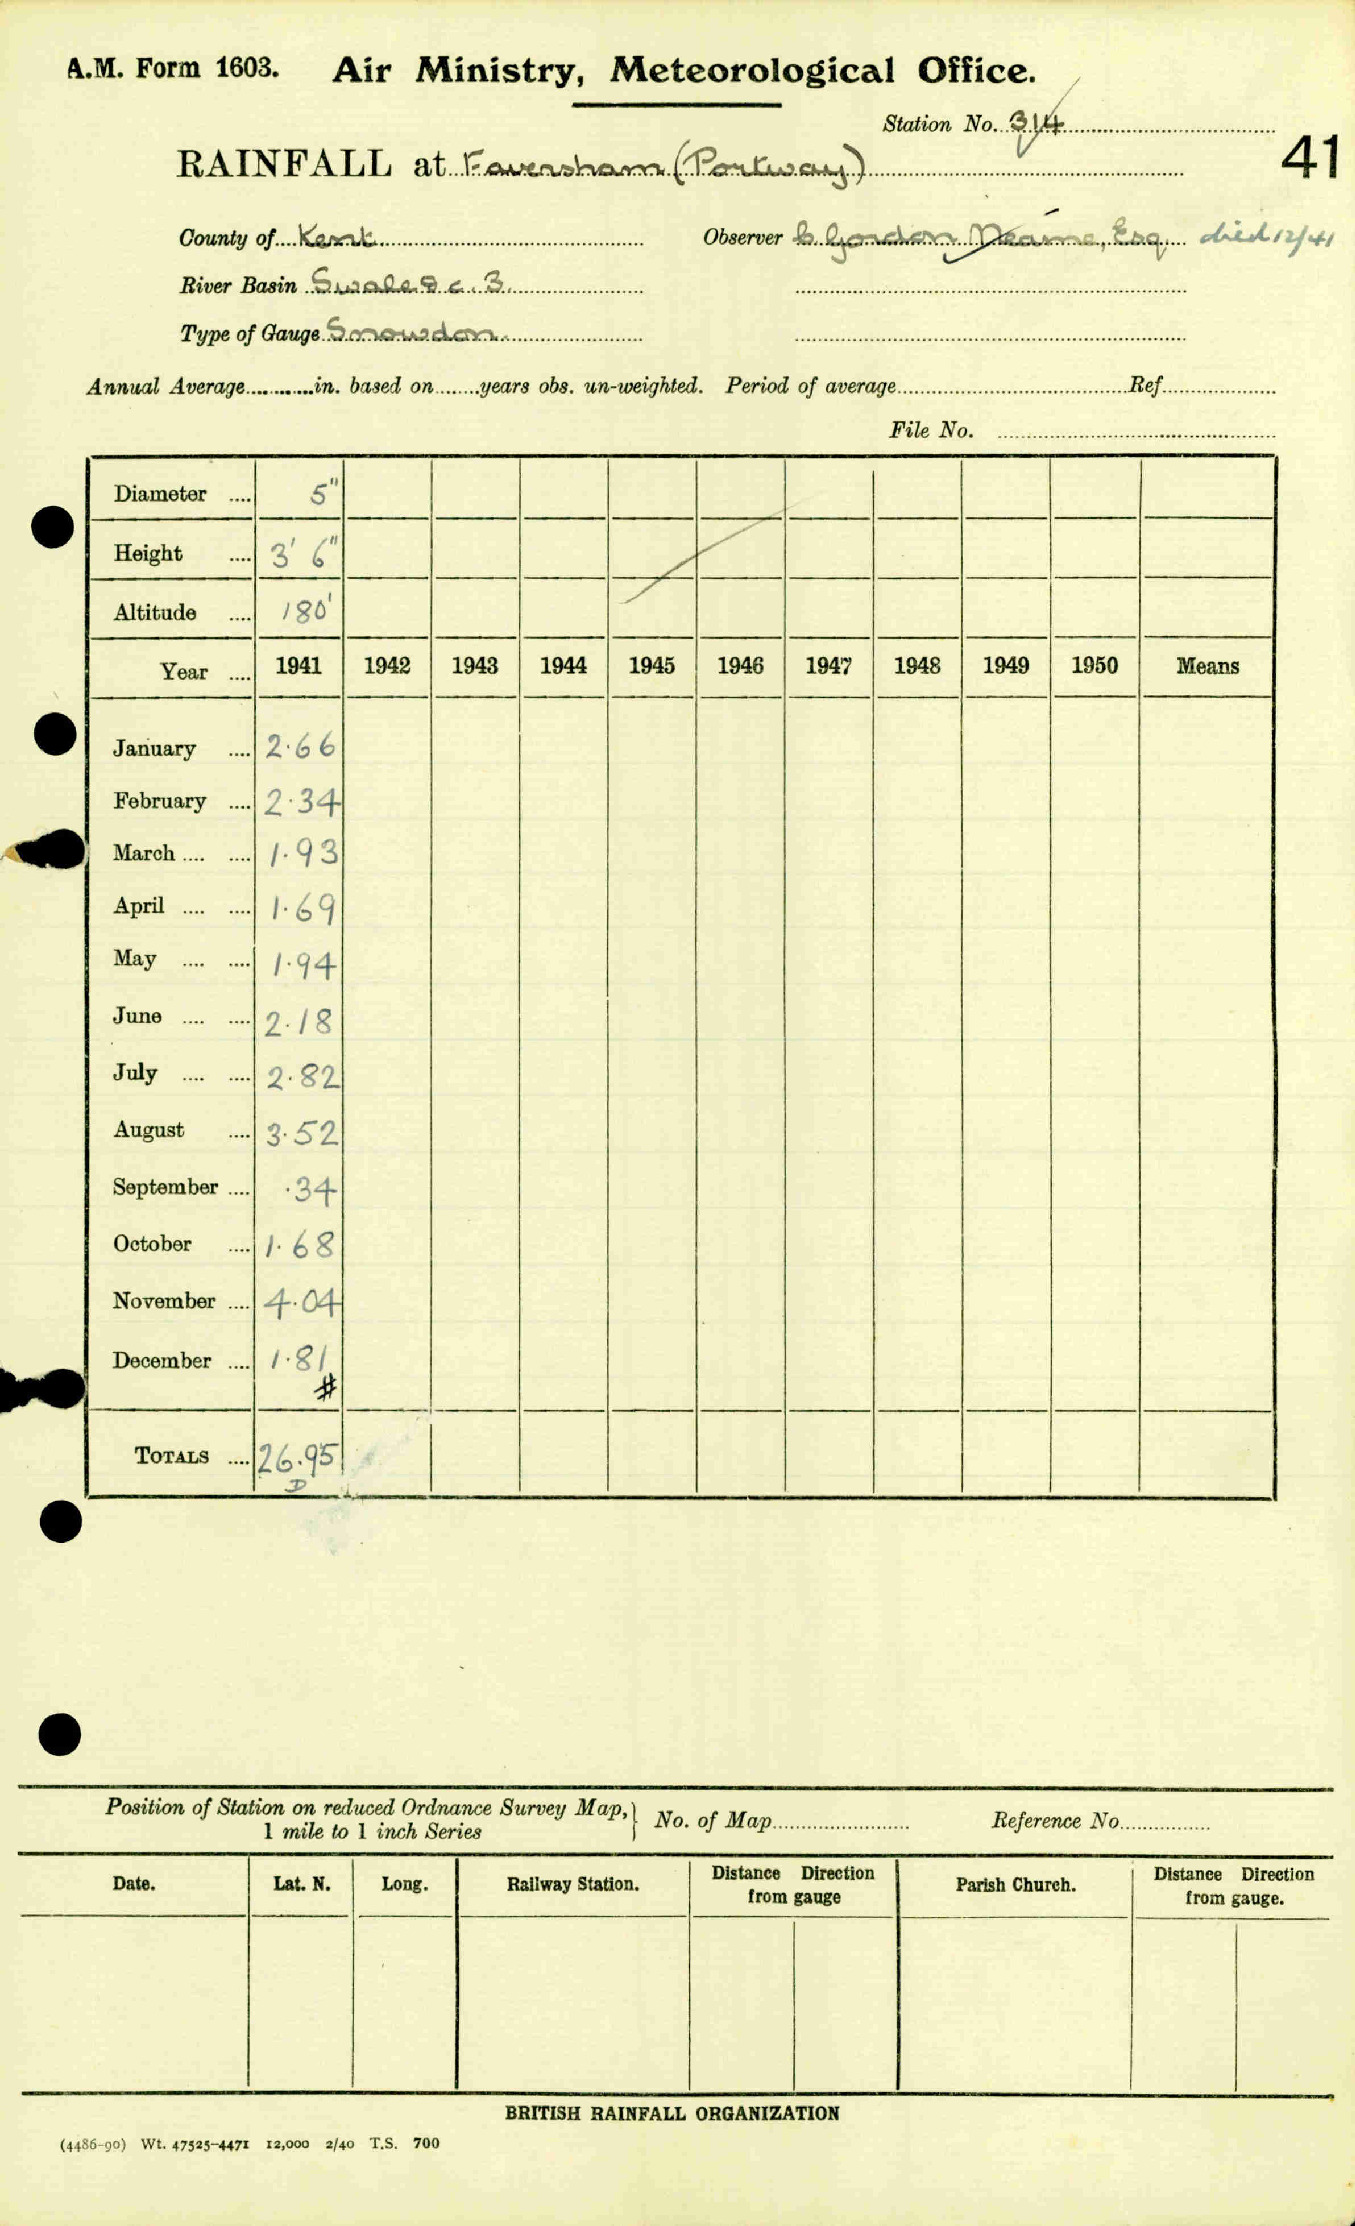 A.M. Form 1603. Air Ministry, Meteorological Office.
Station No. 314
41
RAINFALL at Faversham (Portway)
County of Kent Observer C. Gordon Neame, Esq died 12/41
River Basin Swale &c. 3.
Type of Gauge Snowdon.
Annual Average............in. based on........years obs. un-weighted. Period of average............Ref............
File No. ............
Diameter .... 5"
Height .... 3' 6"
Altitude .... 180'
Year .... 1941 1942 1943 1944 1945 1946 1947 1948 1949 1950 Means
January .... 2.66
February .... 2.34
March .... .... 1.93
April .... .... 1.69
May .... .... 1.94
June .... .... 2.18
July .... .... 2.82
August .... 3.52
September .... .34
October .... 1.68
November .... 4.04
December .... 1.81
#
TOTALS .... 26.95
D
Position of Station on reduced Ordnance Survey Map, } No. of Map............ Reference No............
1 mile to 1 inch Series
Date. Lat. N. Long. Railway Station. Distance Direction from gauge Parish Church. Distance Direction from gauge.
BRITISH RAINFALL ORGANIZATION
(4486-90) Wt. 47525-4471 12,000 2/40 T.S. 700